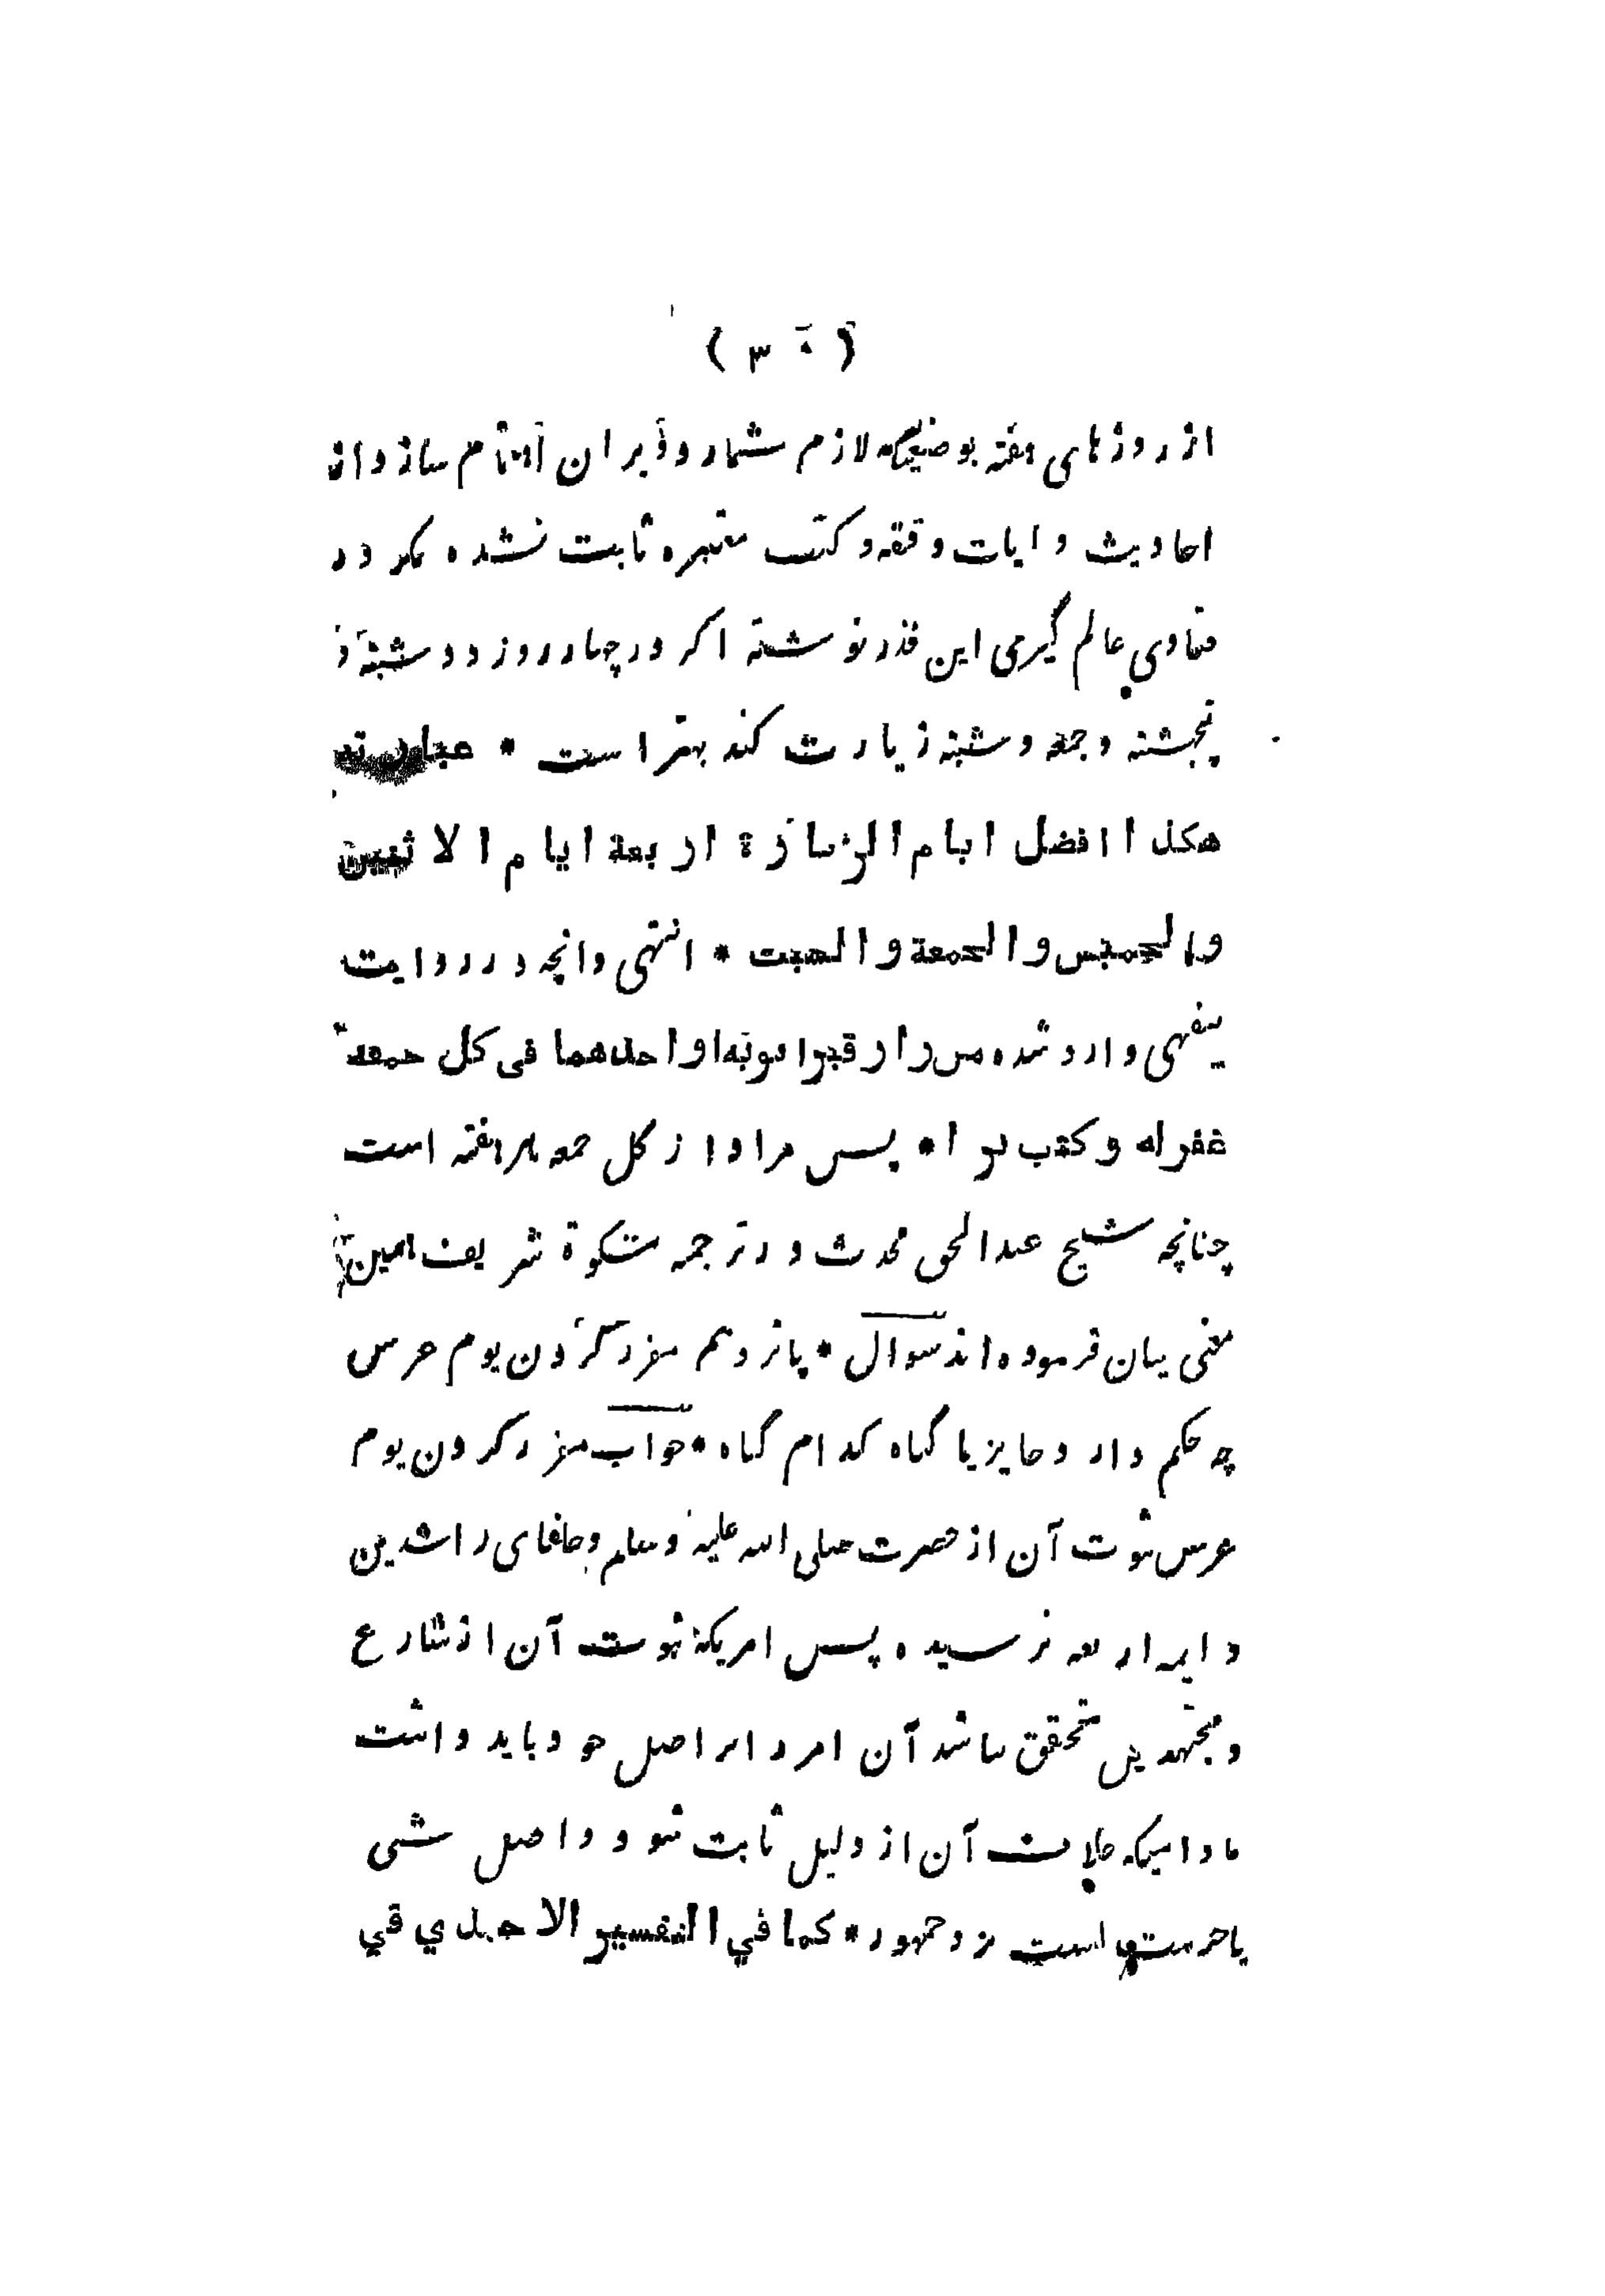 ( ٣٠ )
از روزهای هفته بوضعیکه لازم شمارد و بران اهتمام سازد از
احادیث و ایات و فقه و کتب معتبره ثابت نشده مگر در
فتاوی عالم گیری این قدر نوشته اگر در چهار روز دوشنبه و
پنجشنبه و جمعه و شنبه زیارت کند بهتر است * عبارته
هکذا افضل ایام الزیارة اربعة ایام الاثنین
والخمیس والجمعة والسبت * انتهی وانچه در روایت
بیهقی وارد شده من زار قبر ابویه او احدهما فی کل جمعة
غفر له و کتب برا * پس مراد از کل جمعه هر هفته است
چنانچه شیخ عبدالحق محدث در ترجمه مشکوة شریف همین
معنی بیان فرموده اند سوال * پانزدهم مقرر کردن یوم عرس
چه حکم دارد جایز یا گناه کدام گناه * جواب مقرر کردن یوم
عرس ثبوت آن از حضرت صلی الله علیه وسلم و خلفای راشدین
و ایمه اربعه نرسیده پس امریکه ثبوت آن از شارع
و مجتهدین متحقق نباشد آن امر را بر اصل خود باید داشت
مادامیکه آن از دلیل ثابت شود و اصل شی
یا حرمت است نزد جمهور * کما في التفسیر الاحمدي في